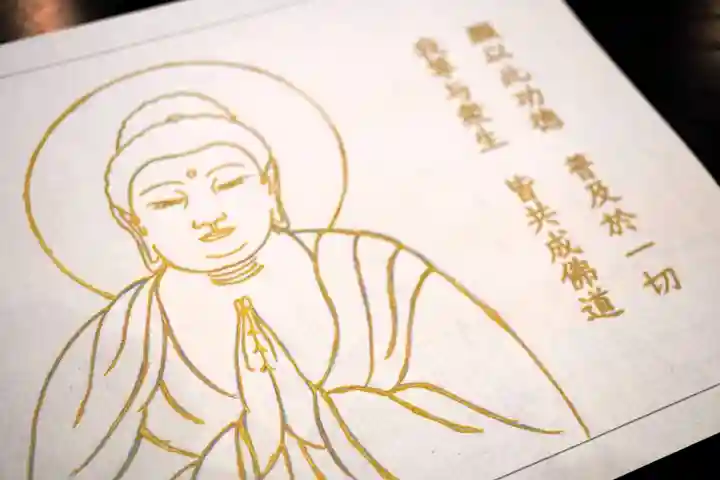 願以此功徳 普及於一切
我等与衆生 皆共成佛道